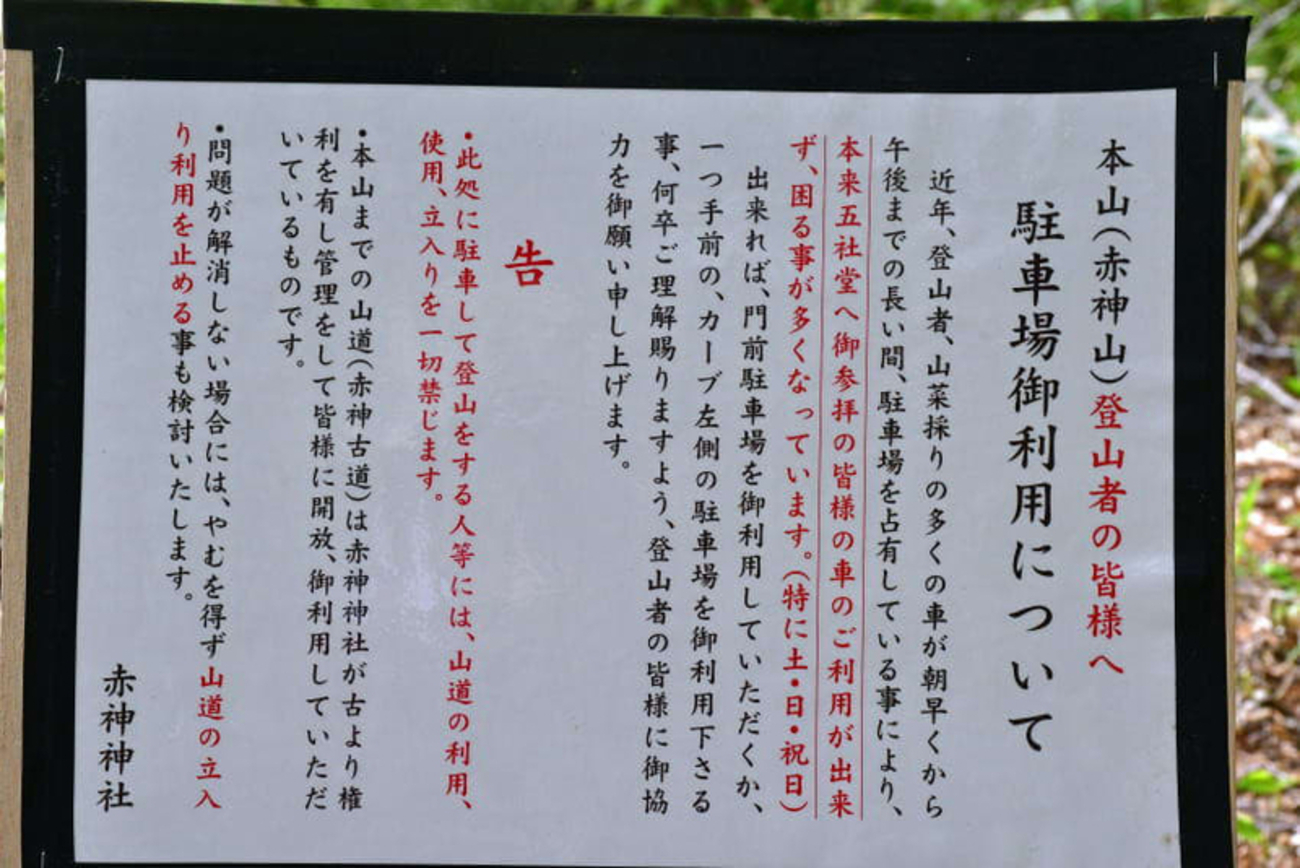 本山(赤神山)登山者の皆様へ
駐車場御利用について
近年、登山者、山菜採りの多くの車が朝早くから
午後までの長い間、駐車場を占有している事により、
本来五社堂へ御参拝の皆様の車のご利用が出来
ず、困る事が多くなっています。(特に土・日・祝日)
出来れば、門前駐車場を御利用していただくか、
一つ手前の、カーブ左側の駐車場を御利用下さる
事、何卒ご理解賜りますよう、登山者の皆様に御協
力を御願い申し上げます。
告
・此処に駐車して登山をする人等には、山道の利用、
使用、立入りを一切禁じます。
・本山までの山道(赤神古道)は赤神神社が古より権
利を有し管理をして皆様に開放、御利用していただ
いているものです。
・問題が解消しない場合には、やむを得ず山道の立入
り利用を止める事も検討いたします。
赤神神社